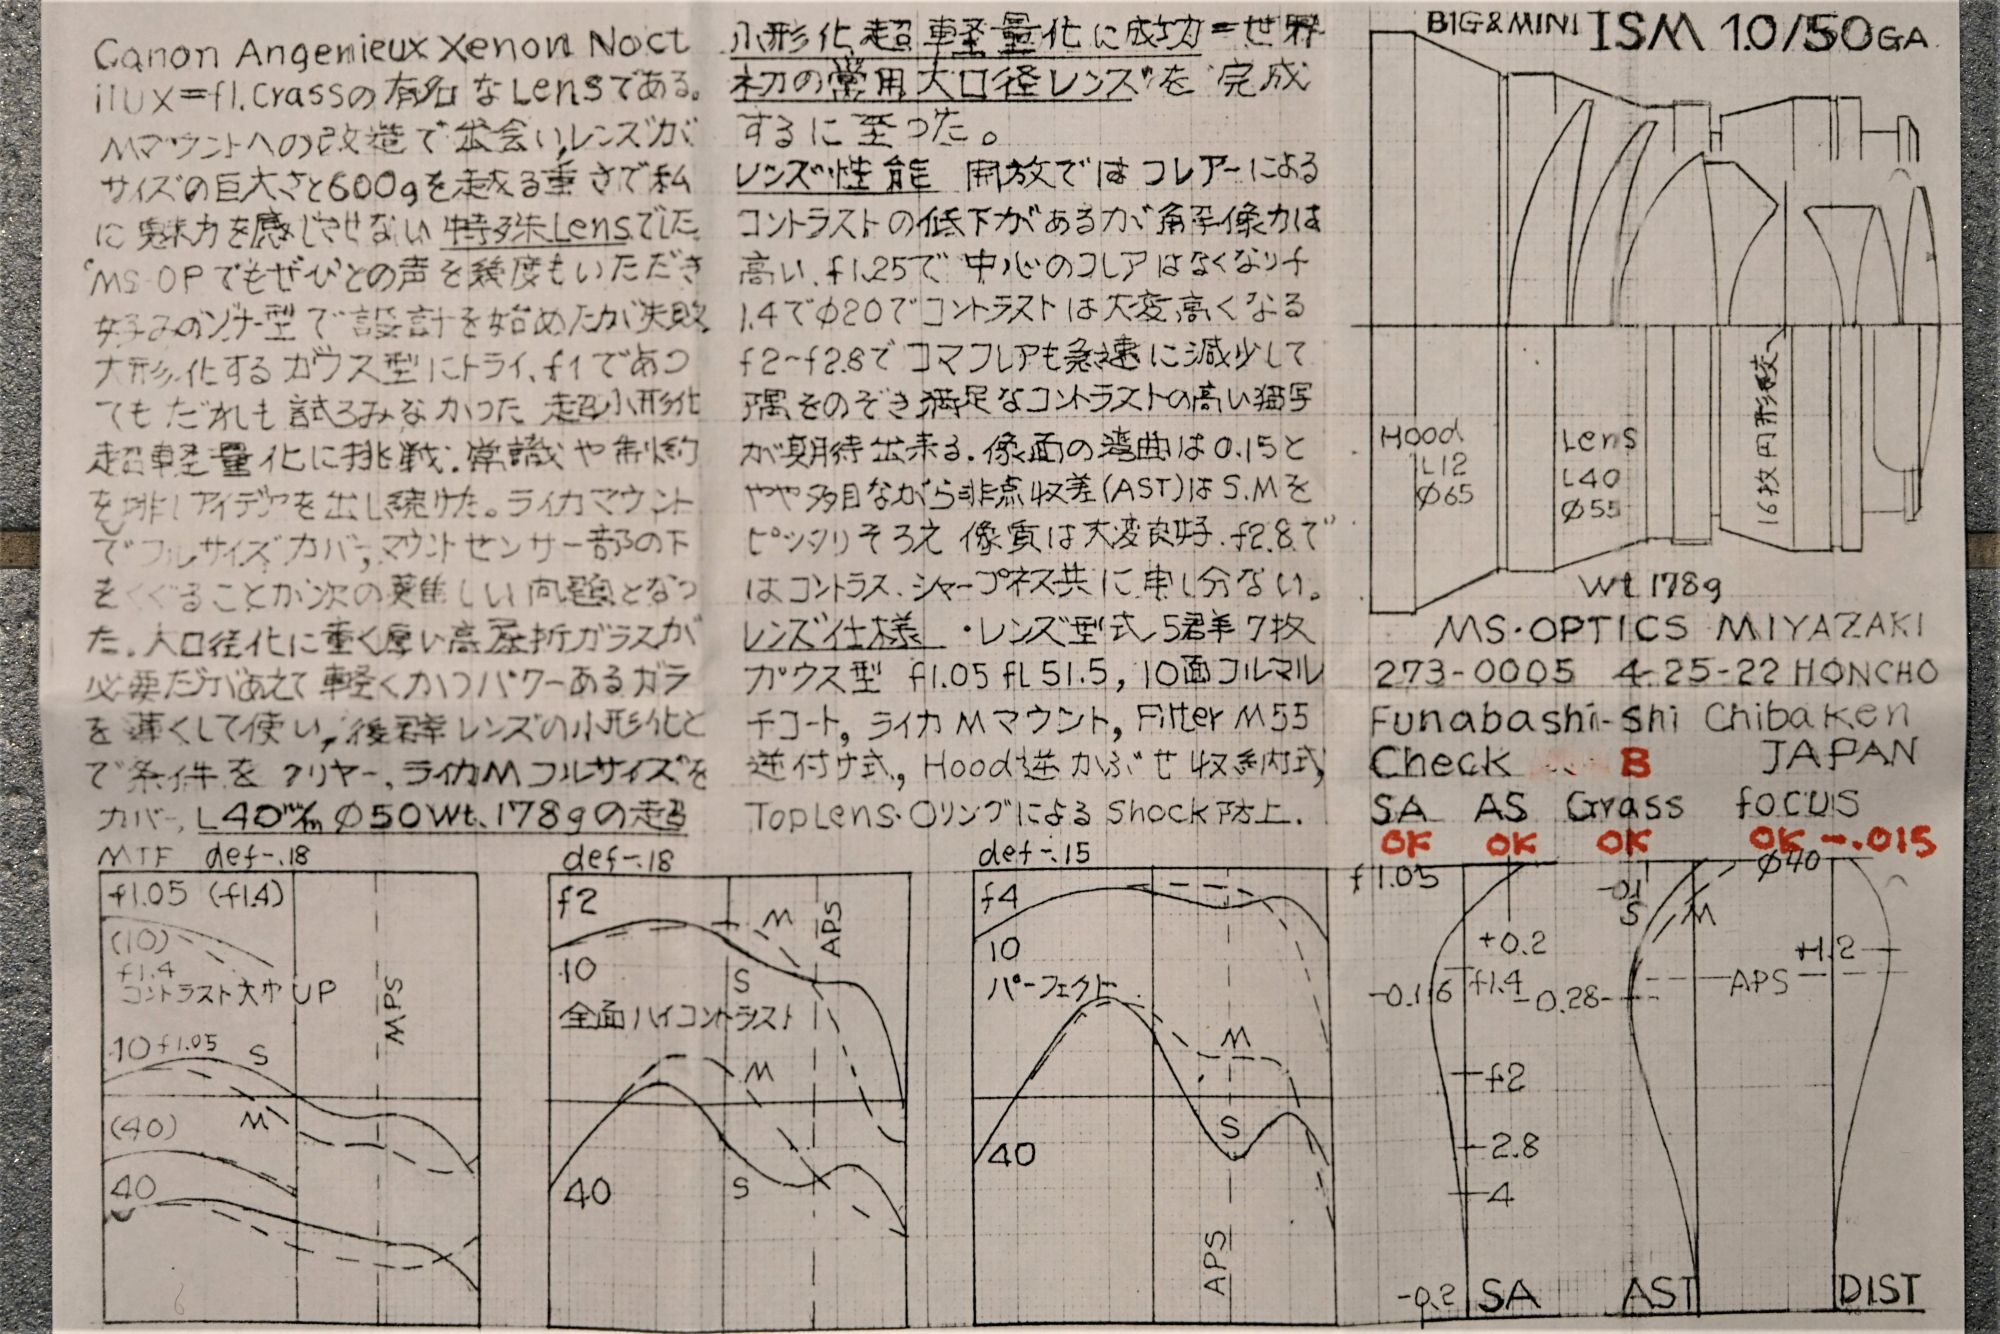 Canon Angenieux Xenon Noct
ilux=f1.Crassの有名なLensである。
Mマウントへの改造で出会い,レンズが
サイズの巨大さと600gを越える重さで私
に魅力を感じさせない特殊Lensでした
MS・OPでもぜひとの声を幾度もいただき
好みのゾナー型で設計を始めたが失敗
大形化するガウス型にトライ、f1であっ
てもだれも試ろみなかった 超小形化
超軽量化に挑戦.常識や制約
を排しアイデアを出し続けた。ライカマウント
でフルサイズカバー,マウントセンサー部の下
をくぐることが次の難しい問題となっ
た.大口径化に重く厚い高屈折ガラスが
必要だがあえて軽くかつパワーあるガラ
を薄くして使い,後群レンズの小形化と
で条件をクリヤー、ライカMフルサイズを
カバー、L40m/m φ50Wt.178gの超
小形化超軽量化に成功=世界
初の常用大口径レンズ"を完成
するに至った。
レンズ性能 開放ではフレアーによる
コントラストの低下があるが角解像力は
高い.f1.25で中心のフレアはなくなりf
1.4でφ20でコントラストは大変高くなる
f2~f2.8でコマフレアも急速に減少して
隅をのぞき満足なコントラストの高い描写
が期待出来る.像面の湾曲は0.15と
やや多目ながら非点収差(AST)はS.Mを
ピッタリそろえ 像質は大変良好.f2.8で
はコントラス.シャープネス共に申し分ない。
レンズ仕様 ・レンズ型式 5群7枚
ガウス型 f1.05 fL51.5, 10面フルマル
チコート, ライカMマウント, Filter M55
逆付け式, Hood逆かぶせ収納式,
TopLens・Oリングによる Shock防止.
BIG&MINI ISM 1.0/50GA.
16枚円形絞
Hood
L12
φ65
Lens
L40
φ55
Wt 178g
MS・OPTICS MIYAZAKI
273-0005 4-25-22 HONCHO
Funabashi-Shi Chibaken
Check B JAPAN
SA AS Grass focus
OK OK OK OK -.015
MTF def-.18
f1.05 (f1.4)
(10)
f1.4
コントラスト大巾UP
10 f1.05 S
M
(40)
40
MPS
def-.18
f2
M
APS
10
S
全面ハイコントラスト
M
40
S
def-.15
f4
10
パーフェクト
M
S
40
APS
f1.05
+0.2
-0.16
f1.4
f2
2.8
4
-0.2
SA
-0.1
S
M
-0.28
APS
AST
φ40
+1.2
DIST